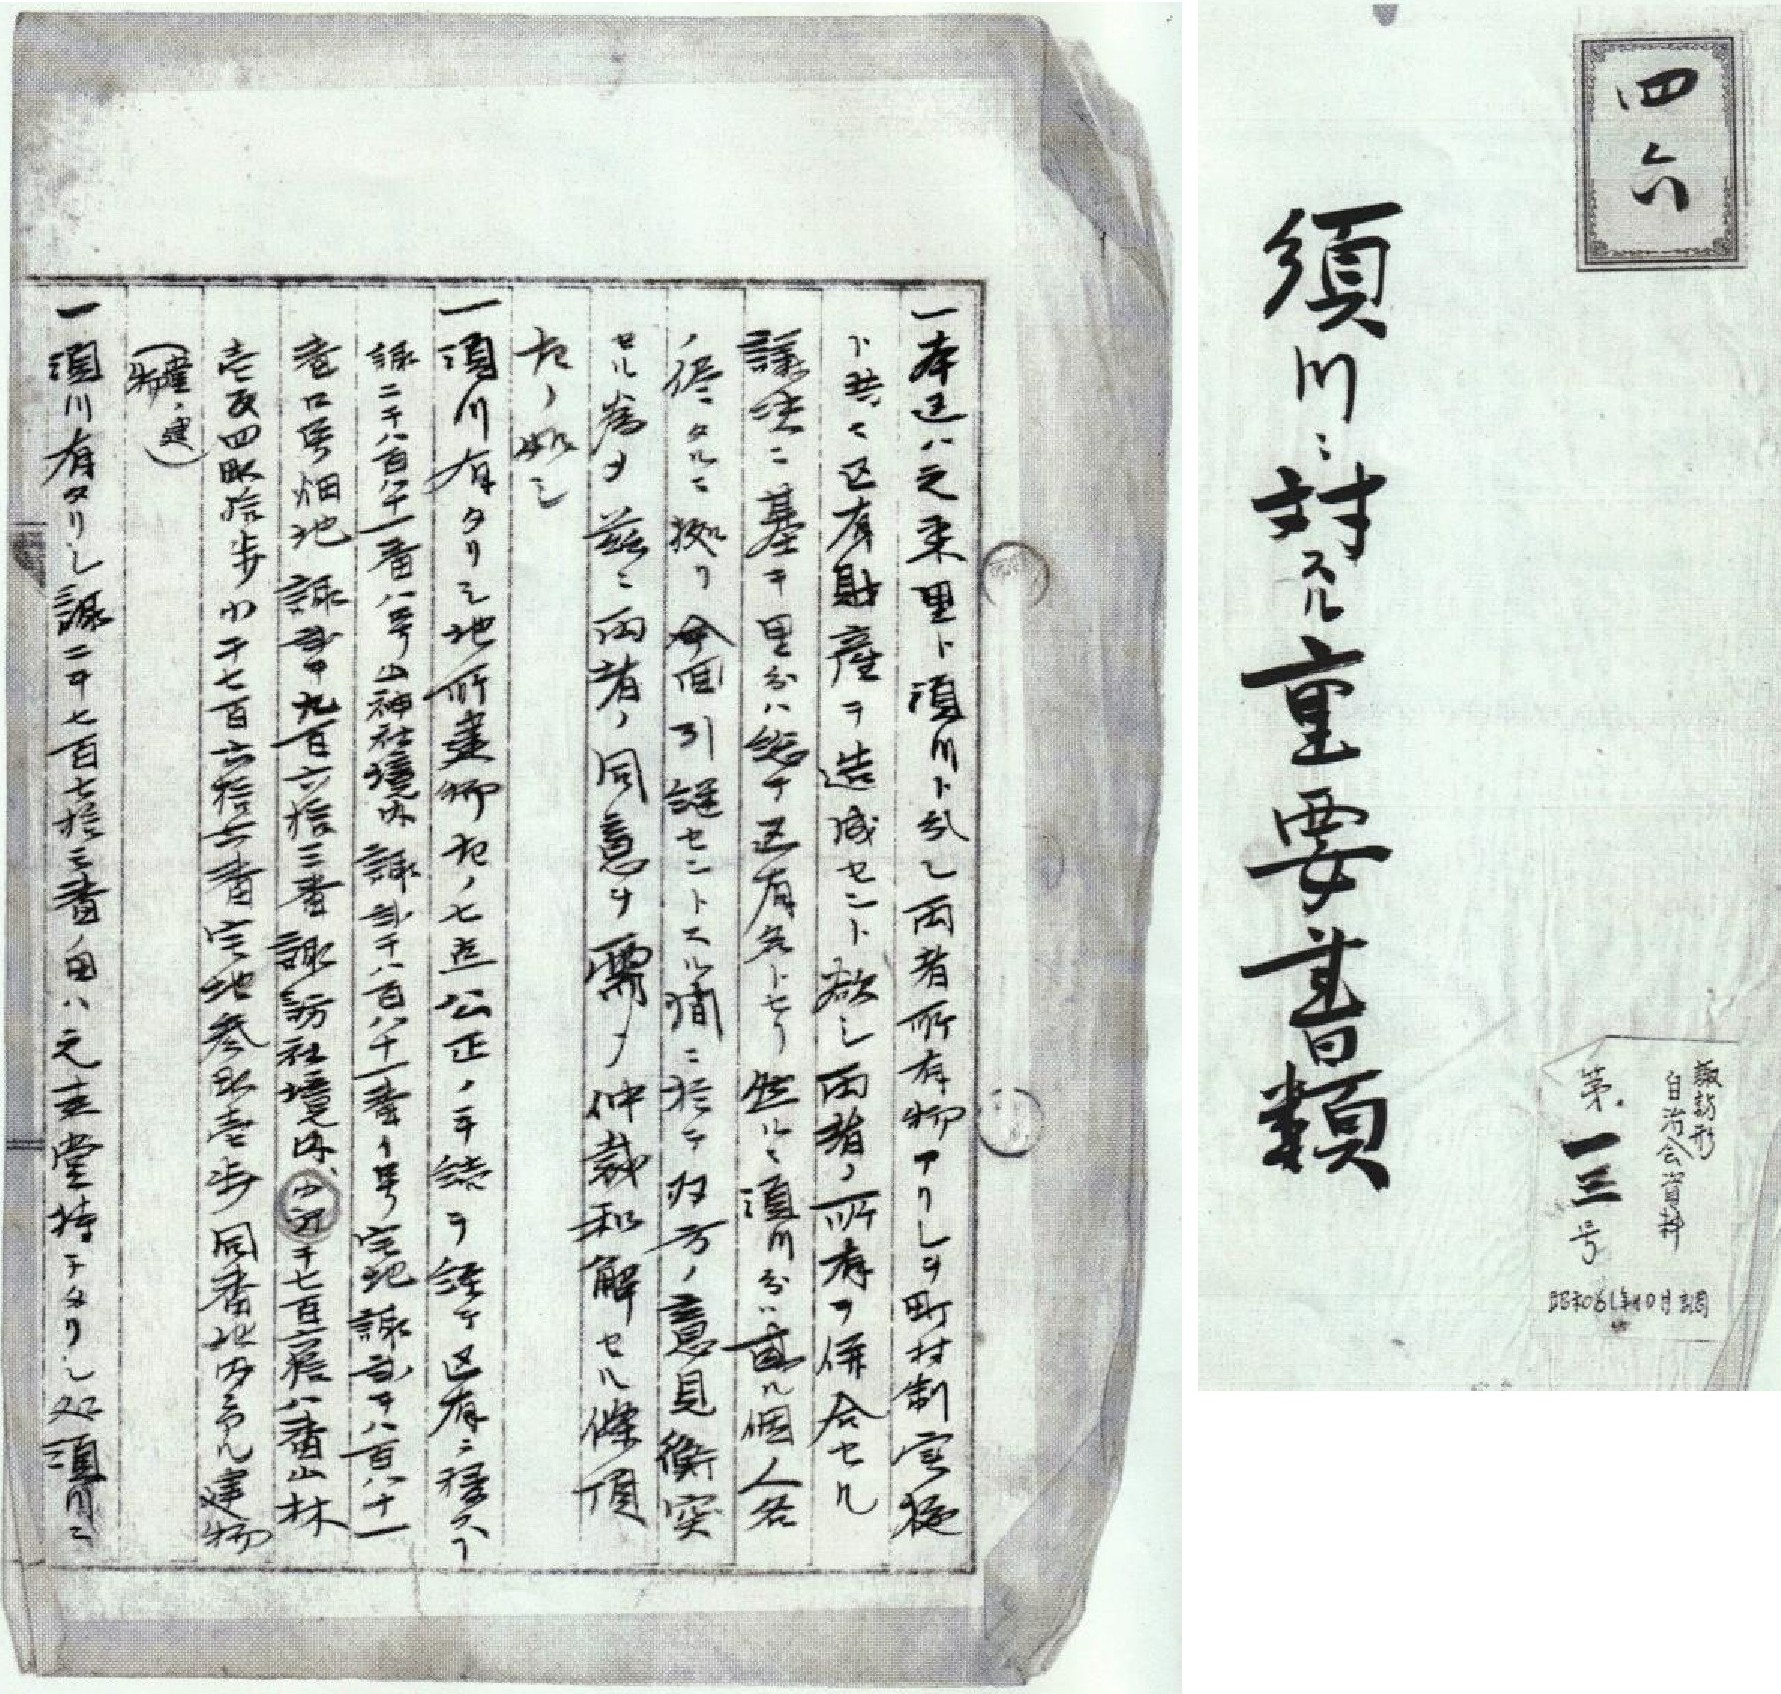 四六
須川ニ対スル重要書類
諏訪形
自治会資料
第一三号
昭和61年10月調
一本区ハ元来里ト須川ト分レ両者所有物アリシヲ町村制実施
ト共ニ区有財産ヲ造成セント欲シ両者ノ所有ヲ併合セル
議決ニ基キ里分ハ総テ区有名トセリ然ルニ須川分ハ直ル個人名
ノ儘タルニ拠リ今回引証セントスル積ニ於テ双方ノ意見衝突
セル為メ茲ニ両者ノ同意ヲ需メ仲裁和解セル條項
左ノ如シ
一須川有タリシ地所建物左ノ七点公正ノ手続ヲ経テ区有ニ移ス
諏二千八百八十一番ハ号山神社境内諏弐千八百八十一番イ号宅地諏弐千八百八十一
番ロ号畑地諏弐千九百六拾三番諏訪社境内小弐千七百六拾八番山林
壱反四畝拾歩小千七百六拾六番宅地参畝壱歩同番地内ニアル建物
一須川有タリシ諏二千七百七拾三番ノ田ハ元主堂持チタリシ処須川ニ